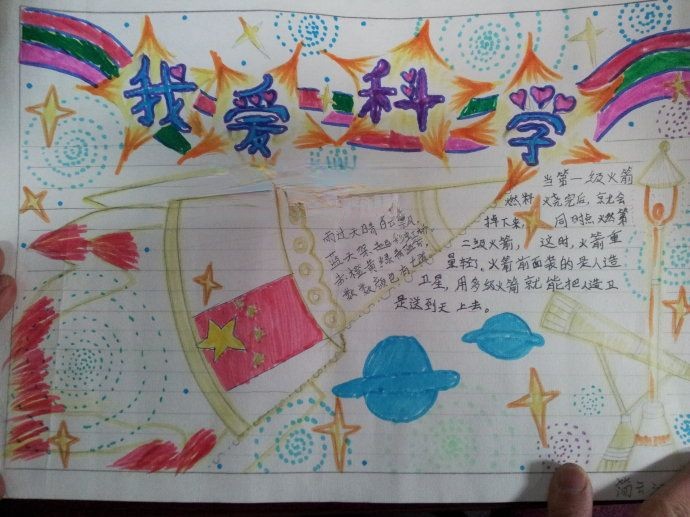 我爱科学
雨过天晴白云飘,
蓝天架起彩虹桥,
赤橙黄绿青蓝紫,
数数颜色有七道
当第一级火箭
燃料烧完后,就会
掉下来, 同时点燃第
二级火箭, 这时,火箭重
量轻了,火箭前面装的是人造
卫星,用多级火箭就能把人造卫
星送到天上去。